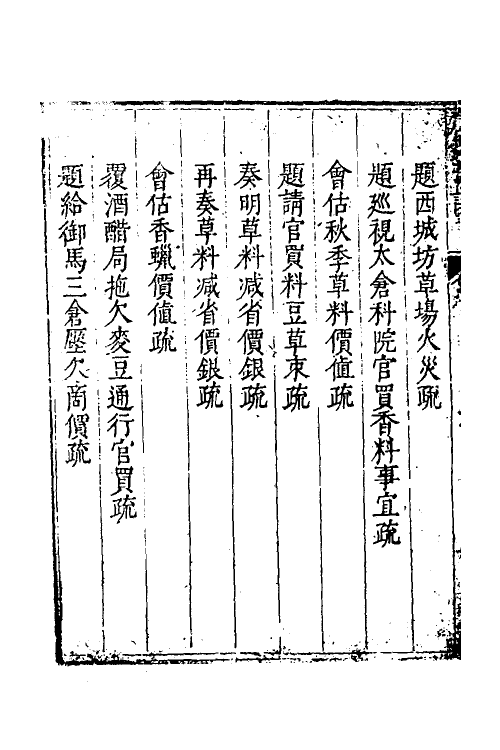 題西城坊草場火災疏
題廵視太倉科院官買香料事宜疏
會估秋季草料價值疏
題請官買料豆草束疏
奏明草料减省價銀疏
再奏草料减省價銀疏
會估香蠟價值疏
覆酒醋局拖欠麥豆通行官買疏
題給御馬三倉壓欠商價疏